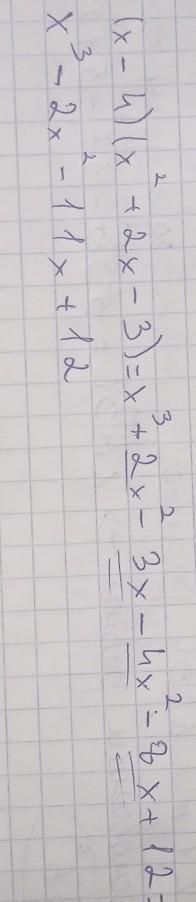 (x - 4)(x² + 2x - 3) = x³ + 2x² - 3x - 4x² - 8x + 12 =
x³ - 2x² - 11x + 12